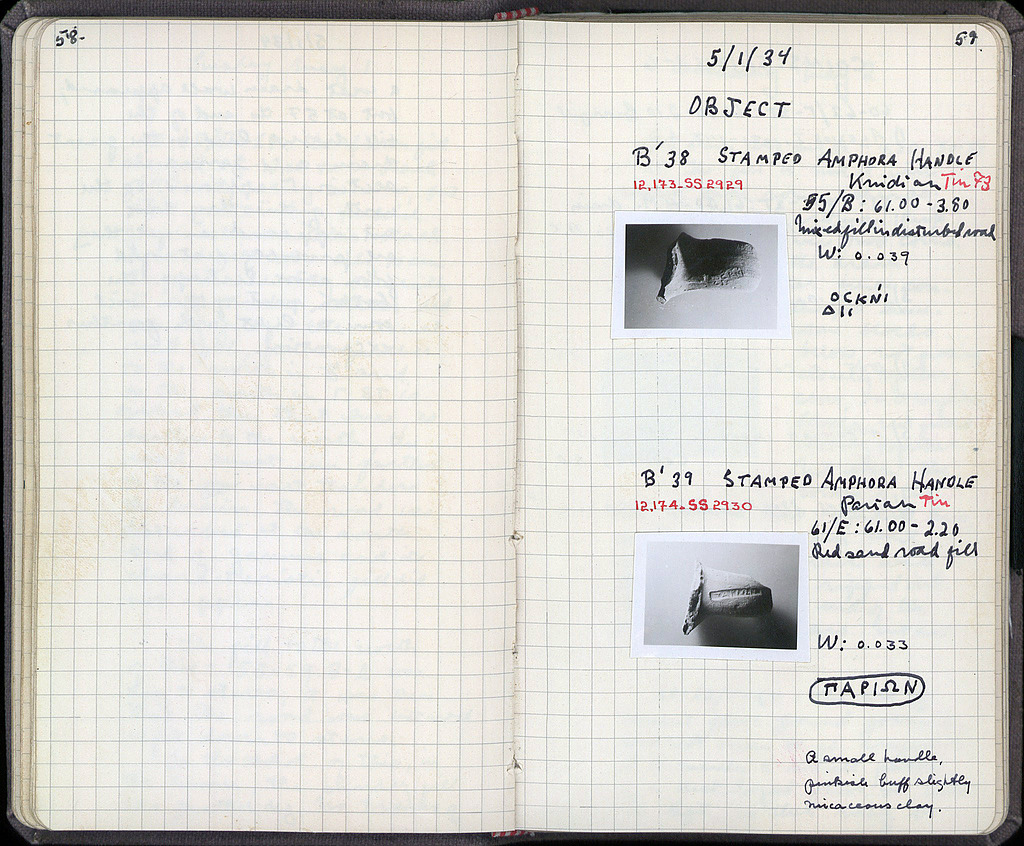 58.
59.
5/1/34
OBJECT
B'38 STAMPED AMPHORA HANDLE
12,173-SS 2929 Knidian Tin
/B: 61.00-3.80
Mixed fill in disturbed road
W: 0.039
ΟCΚΝΙ
ΔΙΙ
B'39 STAMPED AMPHORA HANDLE
12,174-SS 2930 Parian Tin
61/E: 61.00-2.20
Red sand road fill
W: 0.033
ΠΑΡΙΩΝ
A small handle,
pinkish buff slightly
micaceous clay.